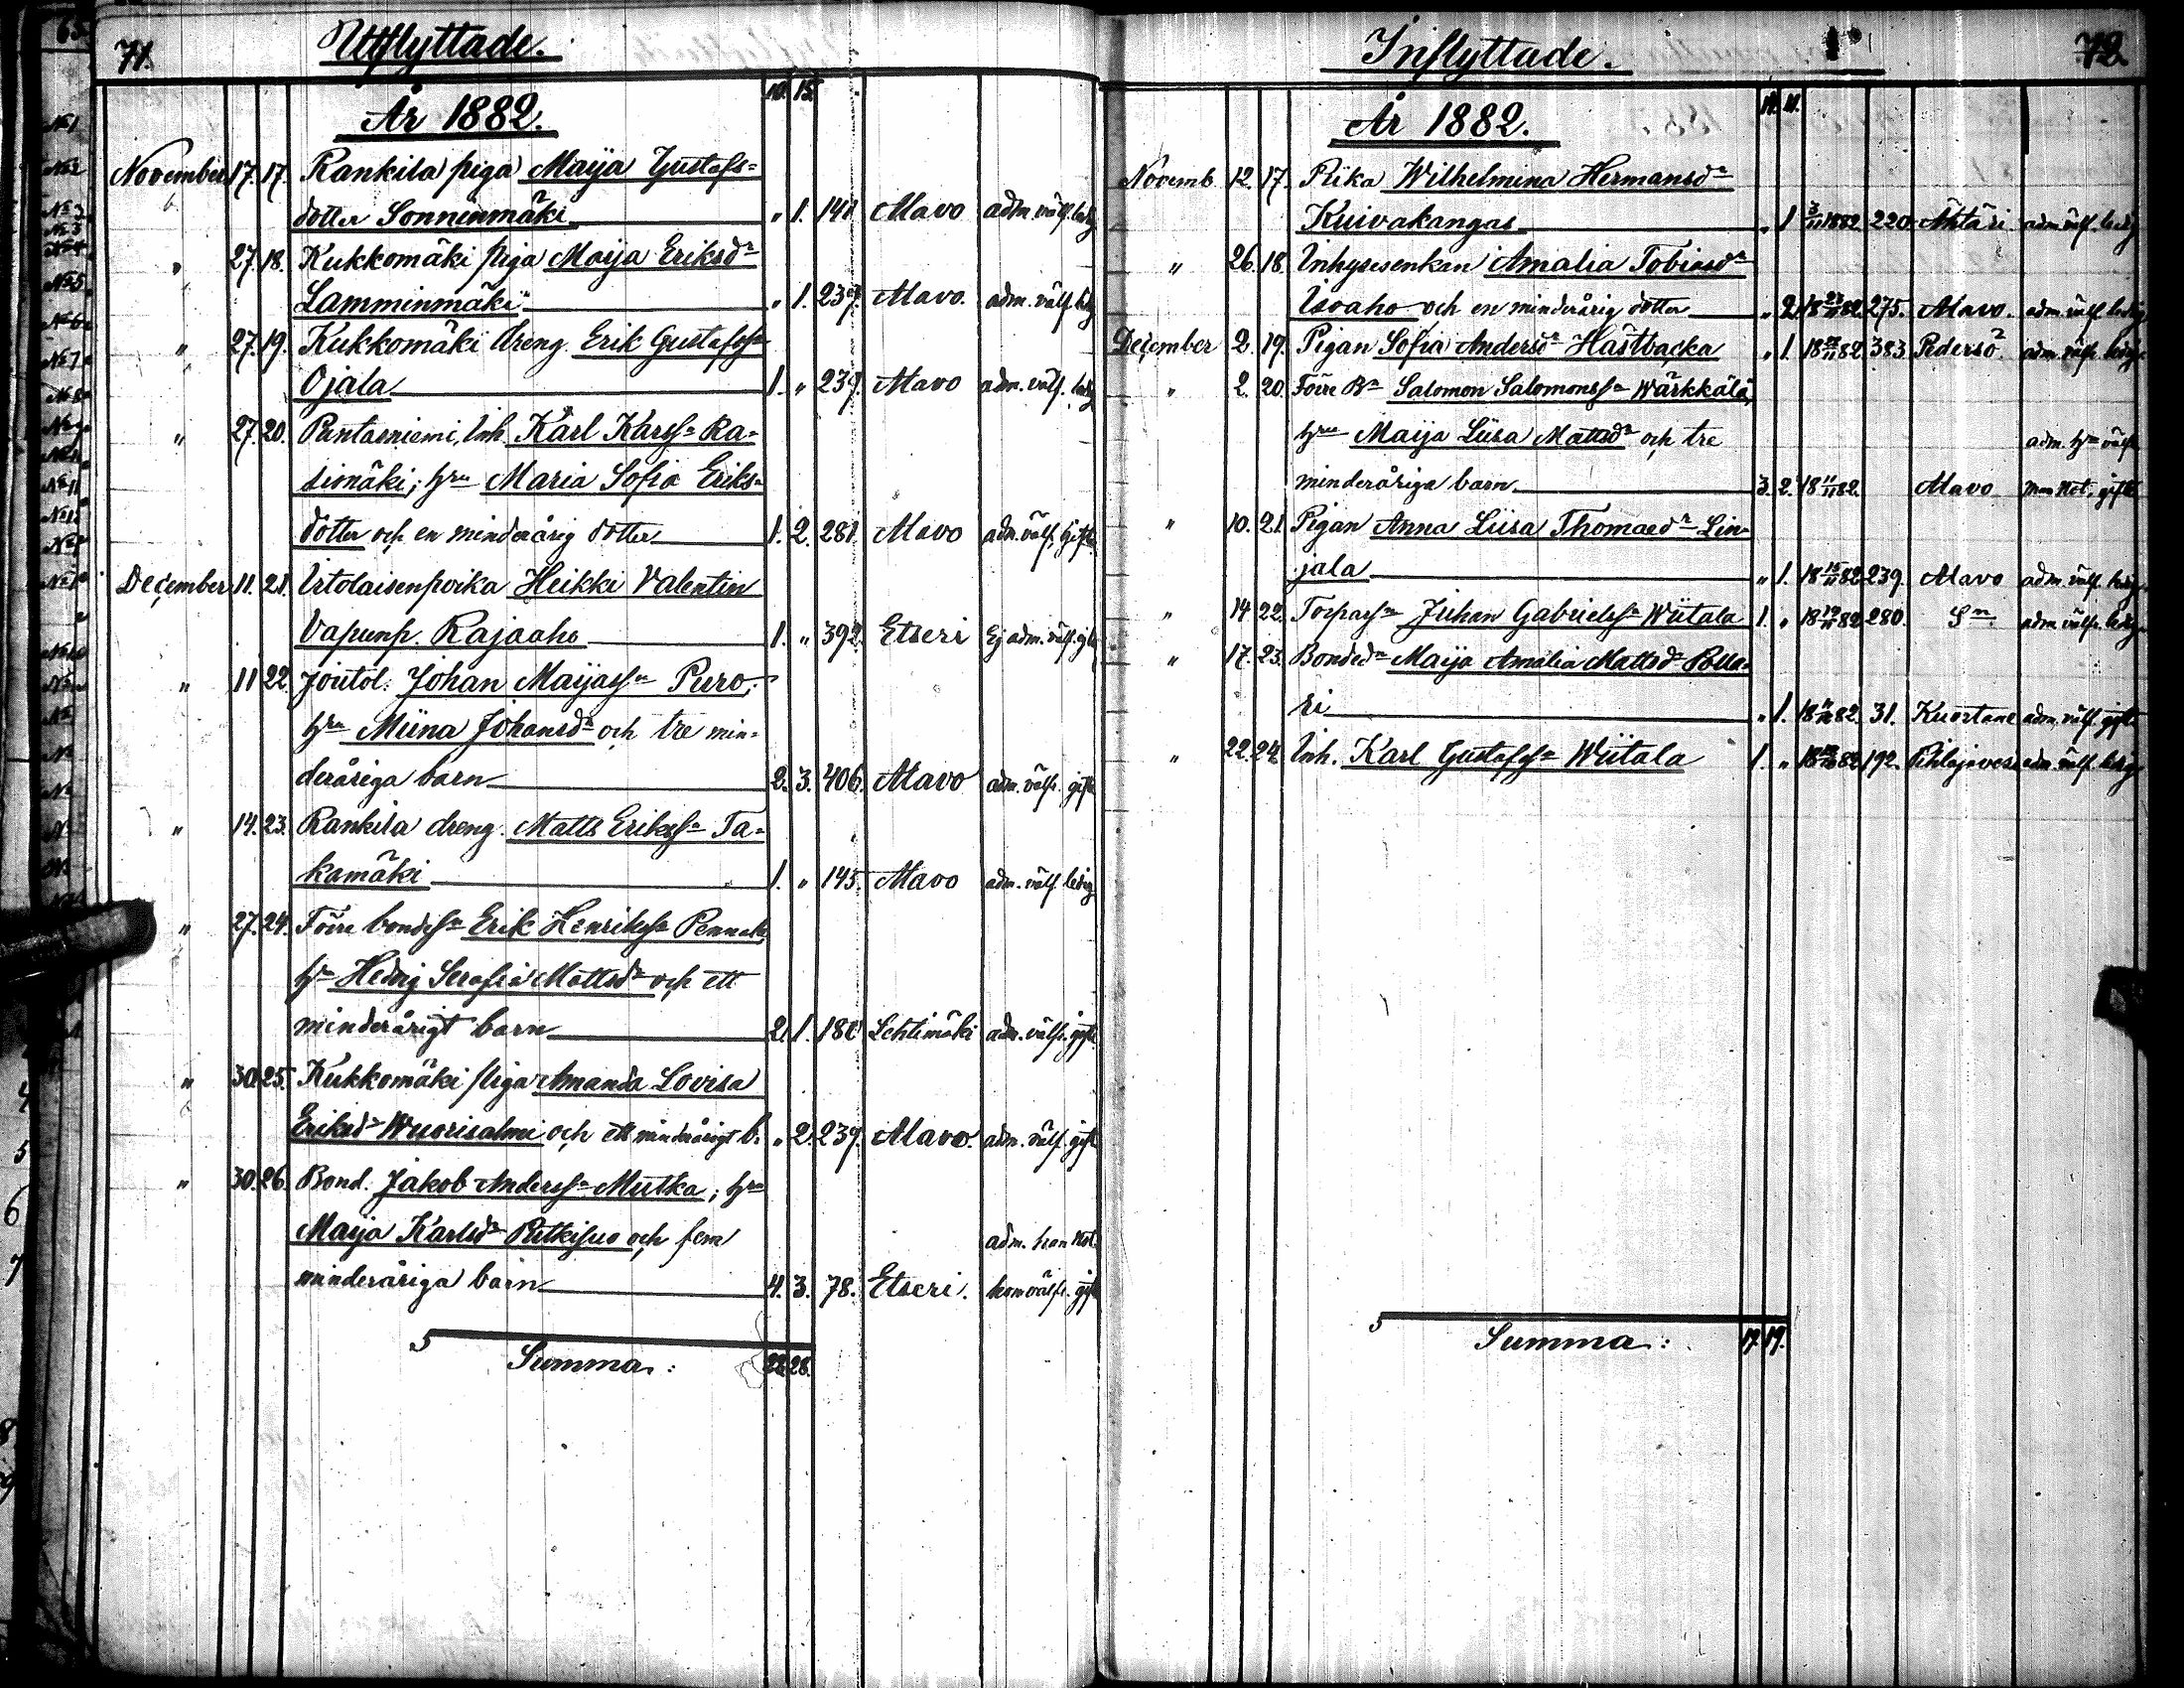 71. Utflyttade.
År 1882. 10. 15.
November 17. 17. Rankila piga Maija Gustafs=
dotter Sonninmäki " 1. 141 Alavo adm. välf. ledig
" 27. 18. Kukkomäki piga Maija Eriksdr
Lamminmäki " 1. 239. Alavo. adm. välf. ledig
" 27. 19. Kukkomäki dreng. Erik Gustafssn
Ojala 1. " 239. Alavo adm. välf. ledig
" 27. 20. Pantasniemi, Inh. Karl Karlssn Ra=
simäki; hru Maria Sofia Eriks=
dotter och en minderårig dotter 1. 2. 281. Alavo adm. välf. gifte
December 11. 21. Irtolaisenpoika Heikki Valentin
Vapunp. Rajaaho 1. " 392. Etseri Ej adm. välf.
" 11 22. Joutol: Johan Maijassn Puro;
hru Miina Johansdr och tre min=
deråriga barn 2. 3. 406. Alavo adm. välf. gifte
" 14. 23. Rankila dreng. Matts Erikssn Ta=
kamäki 1. " 145. Alavo adm. välf. ledig
" 27. 24. Förre bondesn Erik Henrikssn Pennala,
hru Hedvig Serafia Mattsdr och ett
minderårigt barn 2. 1. 180 Lehtimäki adm. välf. gifte
" 30. 25. Kukkomäki piga Amanda Lovisa
Eriksdr Wuorisalmi och ett minderårigt b. " 2. 239. Alavo. adm. välf. gift
" 30. 26. Bond. Jakob Anderssn Mutka; hru
Maija Karlsdr Pitkisuo och fem adm. han Not.
minderåriga barn 4. 3. 78. Etseri. hon välf. gifte
Summa: 28. 28.
Inflyttade. 72.
År 1882. 11.
Novemb. 12. 17. Piika Wilhelmina Hermansdr
Kuivakangas " 1 3/11 1882 220 Ähtäri adm. välf. ledig
" 26. 18. Inhysesenkan Amalia Tobiasdr
Isoaho och en minderårig dotter " 2. 275. Alavo. adm. välf. ledig
December 2. 19. Pigan Sofia Andersdr Hästbacka " 1. 383 Pedersö. adm. välf. ledig
" 2. 20. Förre Bn Salomon Salomonssn Wärkkälä,
hru Maija Liisa Mattsdr och tre adm. hn välf.
minderåriga barn 3. 2. 18 11/11 82. Alavo man Not. gifte
" 10. 21. Pigan Anna Liisa Thomasdr Lin=
jala " 1. 18 15/11 82 239. Alavo adm. välf. ledig
" 14. 22. Torparsn Juhan Gabrielssn Wiitala 1. " 280. Sn adm. välf. ledig
" 17. 23. Bonded. Maija Amalia Mattsdr Polla=
ri " 1. 31. Kuortane adm. välf. gift
" 22. 24. Inh. Karl Gustafssn Wiitala 1. " 192. Pihlajavesi adm. välf. ledig
Summa: 17. 19.